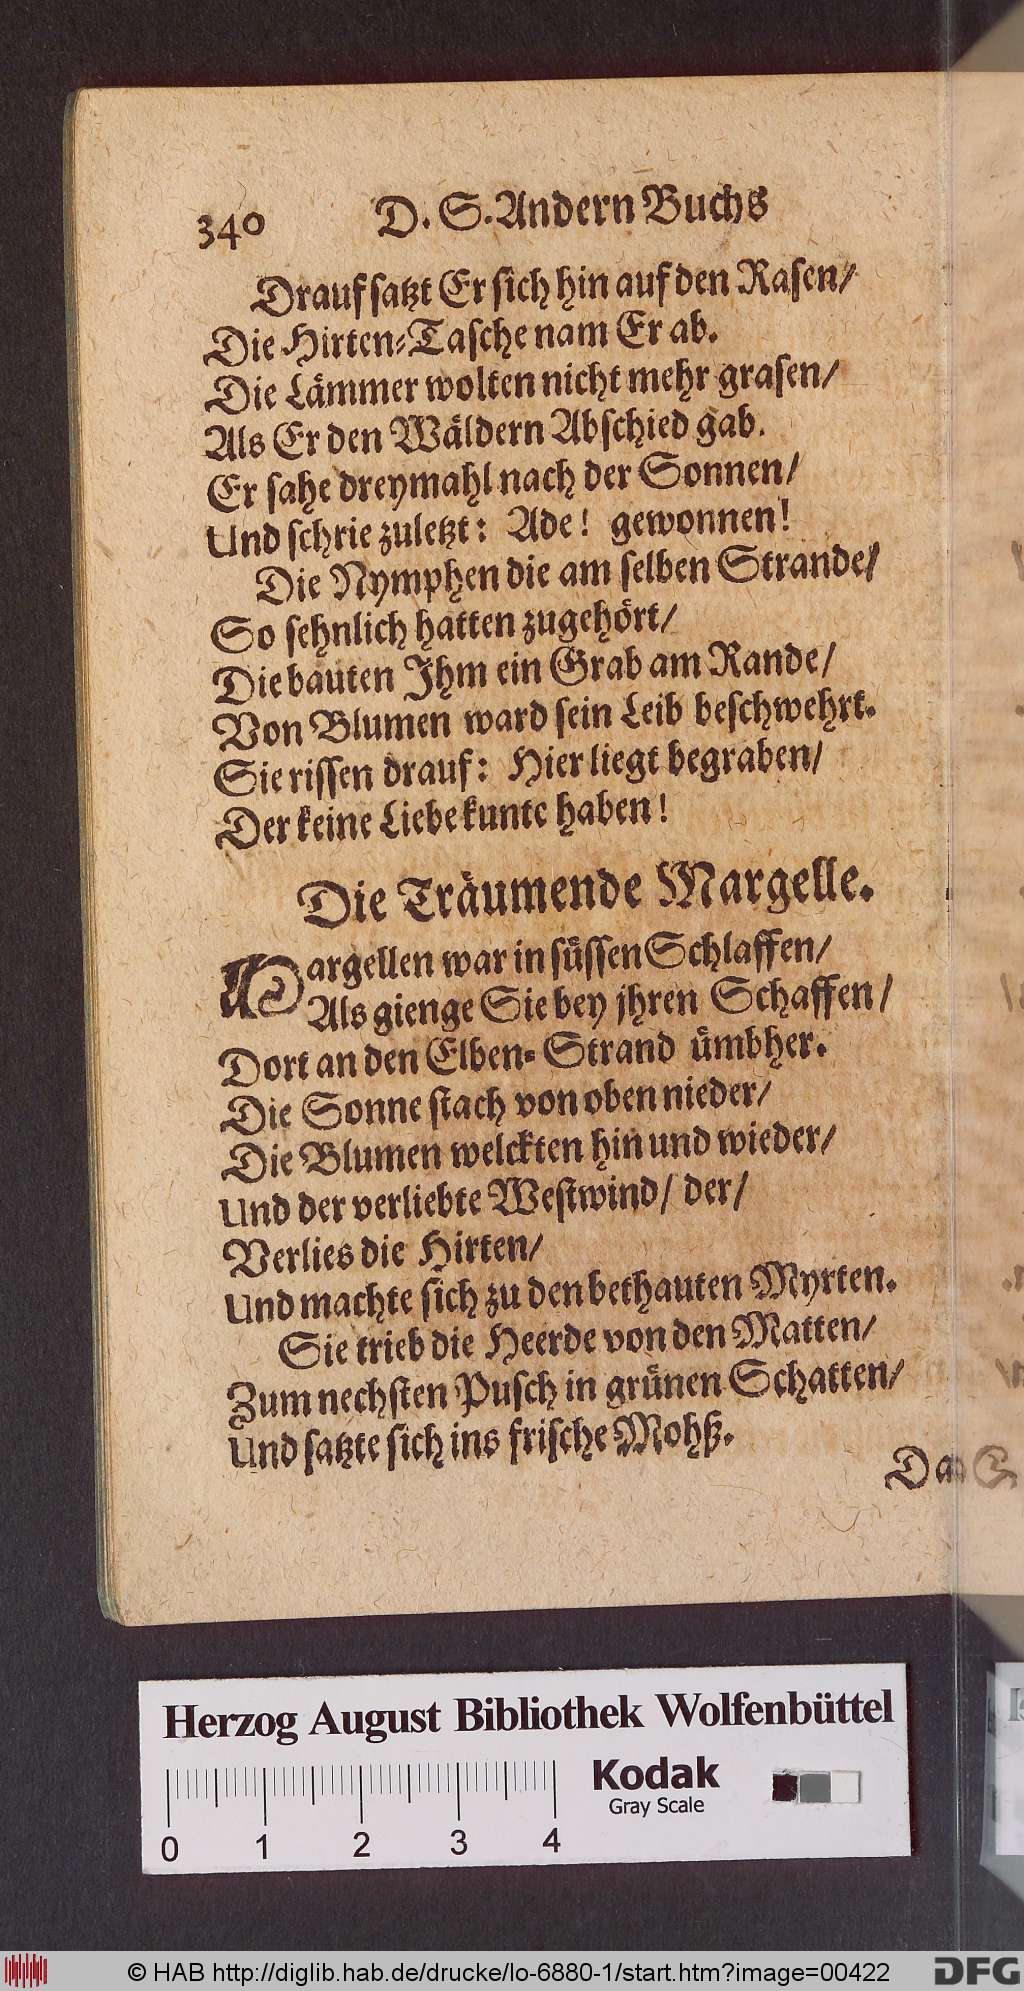 340 D. S. Andern Buchs
Drauf satzt Er sich hin auf den Rasen/
Die Hirten-Tasche nam Er ab.
Die Lämmer wolten nicht mehr grasen/
Als Er den Wäldern Abschied gab.
Er sahe dreymahl nach der Sonnen/
Und schrie zuletzt: Ade! gewonnen!
Die Nymphen die am selben Strande/
So sehnlich hatten zugehört/
Die bauten Jhm ein Grab am Rande/
Von Blumen ward sein Leib beschwehrt.
Sie rissen drauf: Hier liegt begraben/
Der keine Liebe kunte haben!
Die Träumende Margelle.
Margellen war in süssen Schlaffen/
Als gienge Sie bey jhren Schaffen/
Dort an den Elben-Strand ümbher.
Die Sonne stach von oben nieder/
Die Blumen welckten hin und wieder/
Und der verliebte Westwind/ der/
Verlies die Hirten/
Und machte sich zu den bethauten Myrten.
Sie trieb die Heerde von den Matten/
Zum nechsten Pusch in grünen Schatten/
Und satzte sich ins frische Mohß.
Herzog August Bibliothek Wolfenbüttel
Kodak
Gray Scale
0 1 2 3 4
© HAB http://diglib.hab.de/drucke/lo-6880-1/start.htm?image=00422
DFG